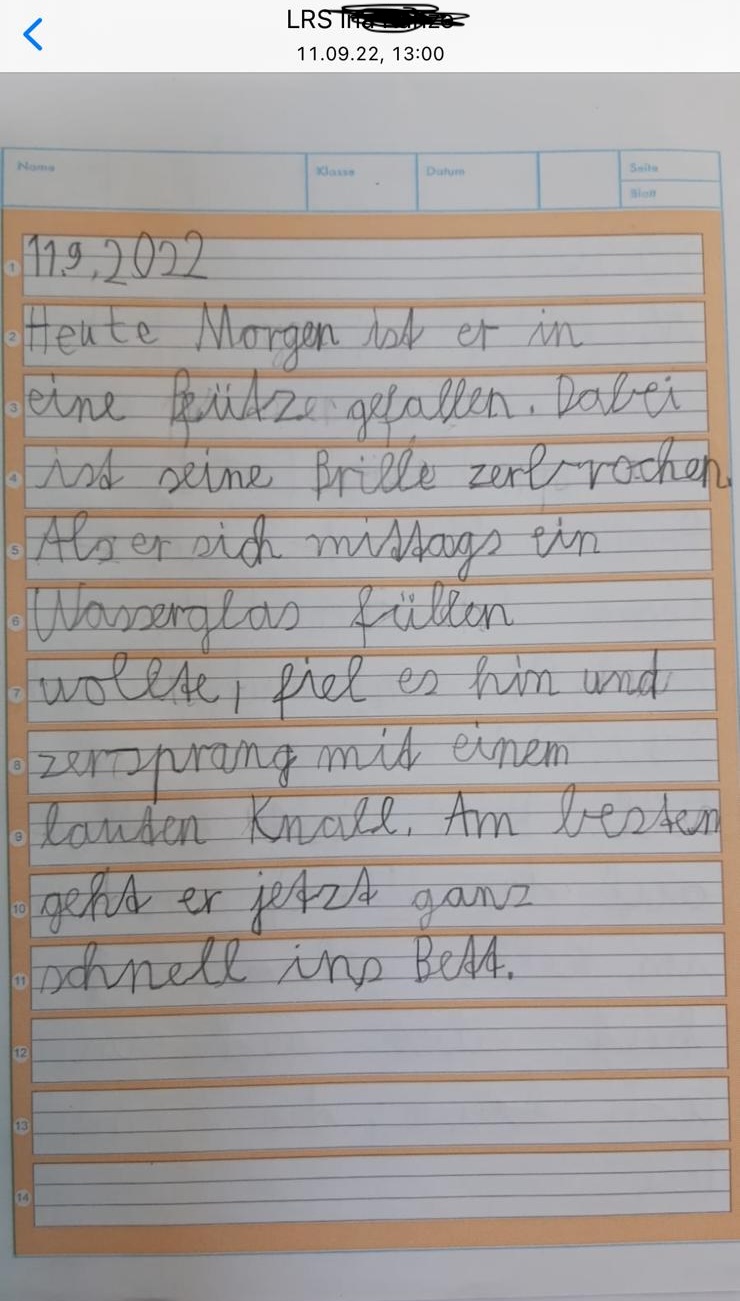 LRS
11.09.22, 13:00
Name Klasse Datum Seite
Blatt
1 11.9.2022
2 Heute Morgen ist er in
3 eine Pfütze gefallen. Dabei
4 ist seine Brille zerbrochen.
5 Als er sich mittags ein
6 Wasserglas füllen
7 wollte, fiel es hin und
8 zersprang mit einem
9 lauten Knall. Am besten
10 geht er jetzt ganz
11 schnell ins Bett.
12
13
14